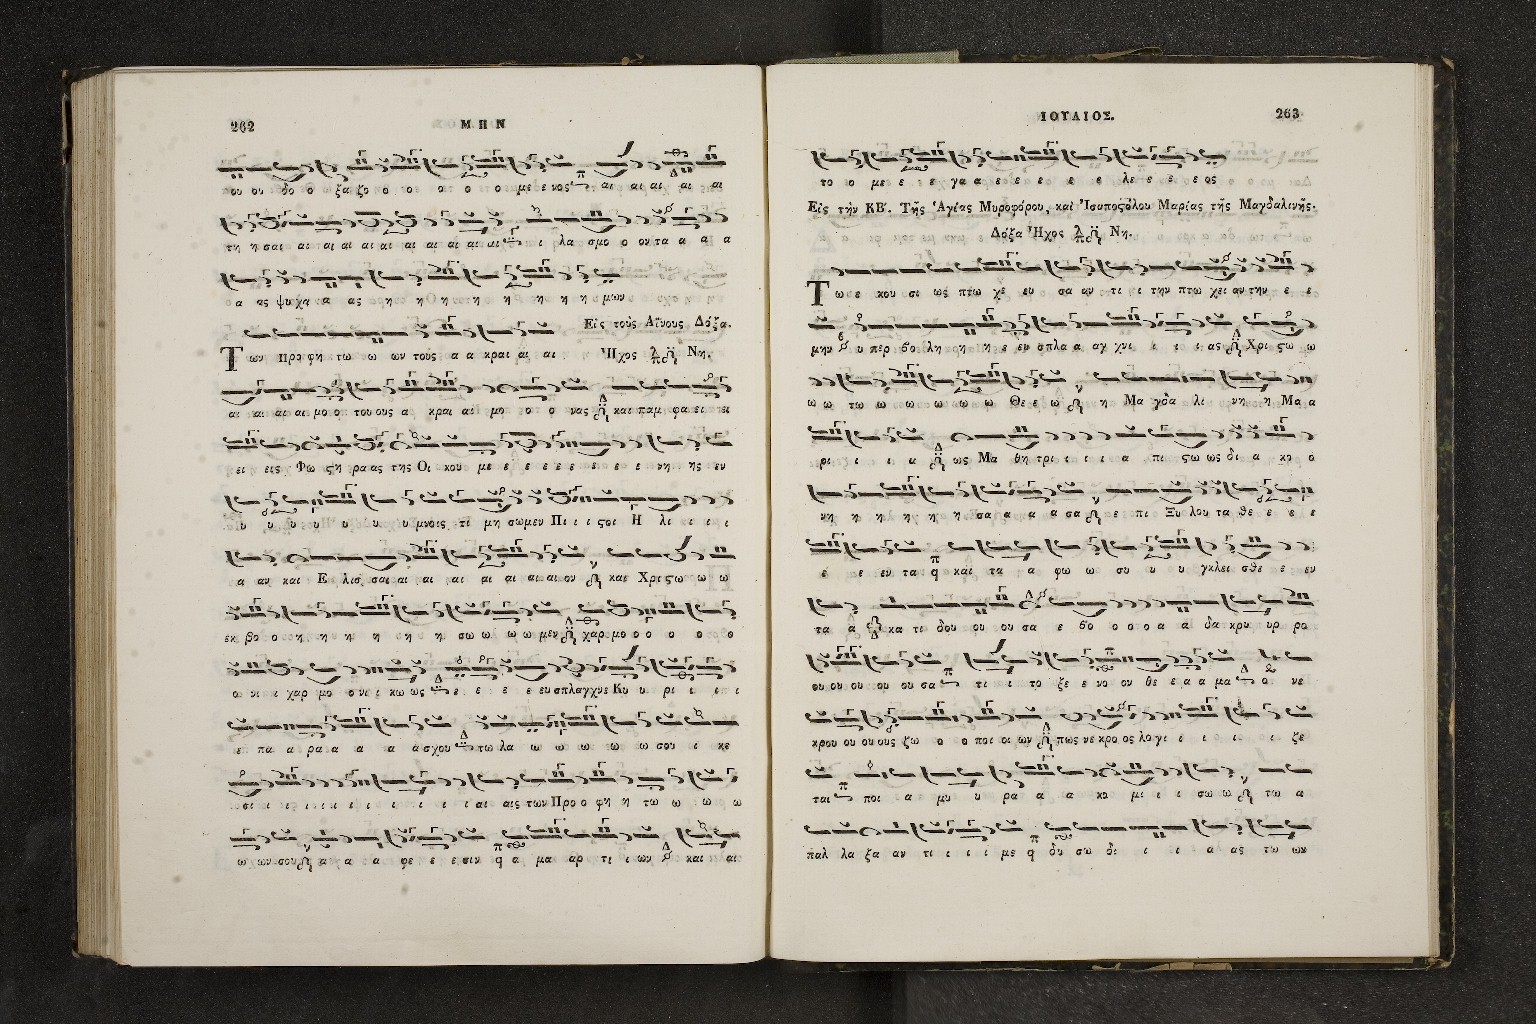 262 ΜΗΝ
ου ου δο ο ξα ζο ο ο ο ο ο ο με ε νος αι αι αι αι αι
τη η σαι αι αι αι αι αι αι αι αι αι αι ι λα σμο ο ον τα α α α
α ας ψυ χα α ας η η η η η η η η μων
Εἰς τοὺς Αἴνους Δόξα.
Των προ φη τω ω ων τους α α κραι αι αι Ἦχος Νη.
αι αι αι αι μο ο του ους α κραι αι μο ο ο ο νας και παμ φα ει ει
ει εις Φω ςη ρα ας της Οι κου με ε ε ε ε ε ε ε ε νη ης εν
υ υ υ υ υ υ υ μνοις τι μη σω μεν Πι ι ι ςοι Η λι ι ι ι
α αν και Ε λισ σαι αι αι αι αι αι αι αι ον και Χρι ςω ω ω
εκ βο ο η η η η η η σω ω ω ω μεν χαρ μο ο ο ο ο ο
ο νι ι χαρ μο ο νι ι κω ως ε ε ε ε ευ σπλαγχνε Κυ υ ρι ι ι ι
ε πα α ρα α α α α σχου τω λα ω ω ω ω ω σου ι κε
σι ι ι ι ι ι ι ι ι ι αι αις των Προ ο φη η τω ω ω ω
ω ων σου α α α φε ε ε σιν α μα αρ τι ι ων και αι
ΙΟΥΛΙΟΣ. 263
το ο με ε ε γα α ε ε ε ε ε λε ε ε ε ος
Εἰς τὴν ΚΒ΄. Τῆς Ἁγίας Μυροφόρου, καὶ Ἰσαποςόλου Μαρίας τῆς Μαγδαλινῆς.
Δόξα Ἦχος Νη.
Τω ε κου σι ως πτω χε ευ σα αν τι ι την πτω χει αν την ε ε
μην υ περ βο λη η η ε εν σπλα α αγ χνι ι ι ι ας Χρι ςω ω
ω ω τω ω ω ω ω ω Θε ε ω η Μα γδα λι νη η Μα α
ρι ι ι α ως Μα θη τρι ι ι ι α πι ςω ως δι α κο ο
νη η η η η η σα α α α σα ε πι Ξυ λου τα θε ε ε ε
ε ε εν τα και τα α φω ω συ υ υ γκλει σθε ε εν
τα α κα τι δου ου ου σα ε βο ο ο ο α α δα κρυ υρ ρο
ου ου ου ου ου σα τι ι το ξε ε νο ον θε ε α α μα ο νε
κρου ου ου ους ζω ο ο ποι οι ων πως νε κρο ος λο γι ι ι ι ι ζε
ται ποι α μυ υ ρα α α κο μι ι ι σω ω τω α
παλ λα ξα αν τι ι ι ι με δυ σω δι ι ι α ας τω ων